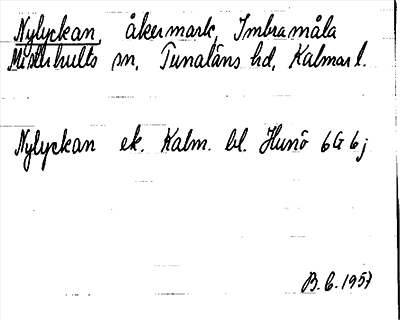 Nylyckan, åkermark, Imbramåla
Misterhults sn, Tunaläns hd, Kalmar l.
Nylyckan ek. Kalm. bl. Hunö 6G 6j
B.C. 1957